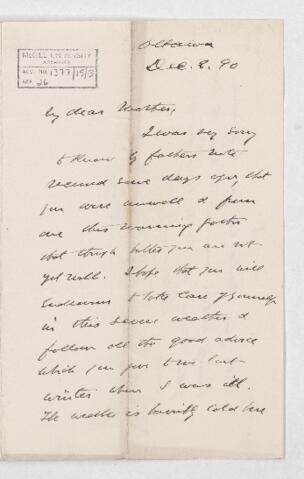 McGILL UNIVERSITY
ARCHIVES
ACC. NO. 1377/15/3
REF. 26
Ottawa
Dec. 8. 90
My dear Mother,
I was very sorry
to know by fathers note
received some days ago, that
you were unwell & from
one this morning further
that though better you are not
yet well. I hope that you will
endeavour to take care of yourself
in this severe weather &
follow all the good advice
which you gave to me last
winter when I was ill.
The weather is horribly cold here